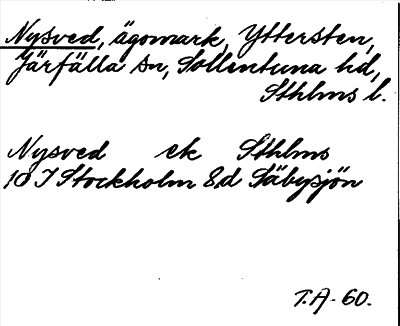 Nysved, ägomark, Yttersten,
Järfälla sn, Sollentuna hd,
Sthlms l.
Nysved ek Sthlms
10 I Stockholm 8d Säbysjön
T.A. 60.